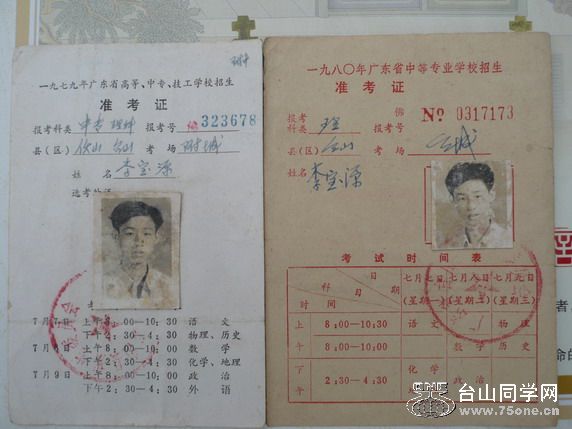 附中
一九七九年广东省高等、中专、技工学校招生
准考证
报考科类 中专 理科 报考号 323678
县(区) 佛山 台山 考场 附城
姓名 李宝源
7月7日 上午8:00—10:30 语文
下午2:30—4:30 物理、历史
上午8:00—10:00 数学
下午2:30—4:30 化学、地理
7月9日 上午8:00—10:00 政治
下午2:30—4:30 外语
一九八〇年广东省中等专业学校招生
准考证
佛
报考科类 理 No 0317173
县(区) 台山 考场 台城
姓名 李宝源
考试时间表
日期 七月七日 七月八日 七月九日
科目 (星期一) (星期二) (星期三)
时间
上午 8:00—10:30 语文 物理
8:00—10:00 数学 历史
下午 2:30—4:30 化学 政治
台山同学网
www.75one.cn